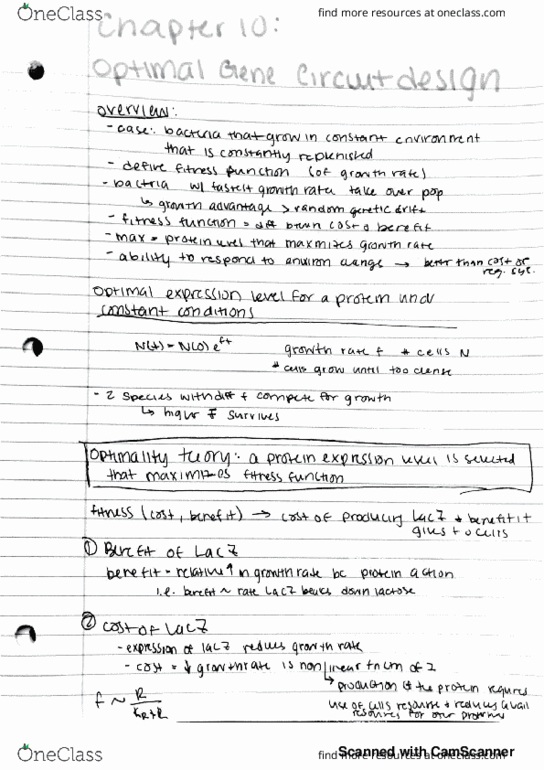 OneClass
find more resources at oneclass.com
Chapter 10:
Optimal Gene Circuit design
overview:
- case: bacteria that grow in constant environment
that is constantly replenished
- define fitness function (of growth rate)
- bactria w/ fastest growth rate take over pop
↳ growth advantage > random genetic drift
- fitness function = diff btwn cost & benefit
- max = protein level that maximizes growth rate
- ability to respond to environ change → better than cost of
reg. sys.
Optimal expression level for a protein undr
constant conditions
N(t) = N(0) e^ft growth rate f # cells N
* cells grow until too dense
- 2 species with diff f compete for growth
↳ higher f survives
Optimality theory: a protein expression level is selected
that maximizes fitness function
fitness (cost, benefit) → cost of producing LacZ + benefit it
gives to cells
① Benefit of LacZ
benefit = relative ↑ in growth rate bc protein action
i.e. benefit ~ rate LacZ breaks down lactose
② Cost of LacZ
- expression of lacZ reduces growth rate
- cost = ↓ growth rate is nonlinear fncn of Z
↳ production of the protein requires
use of cells resource + reduces avail
resources for other proteins
f ~ R / K_R+R
Scanned with CamScanner
OneClass
find more resources at oneclass.com